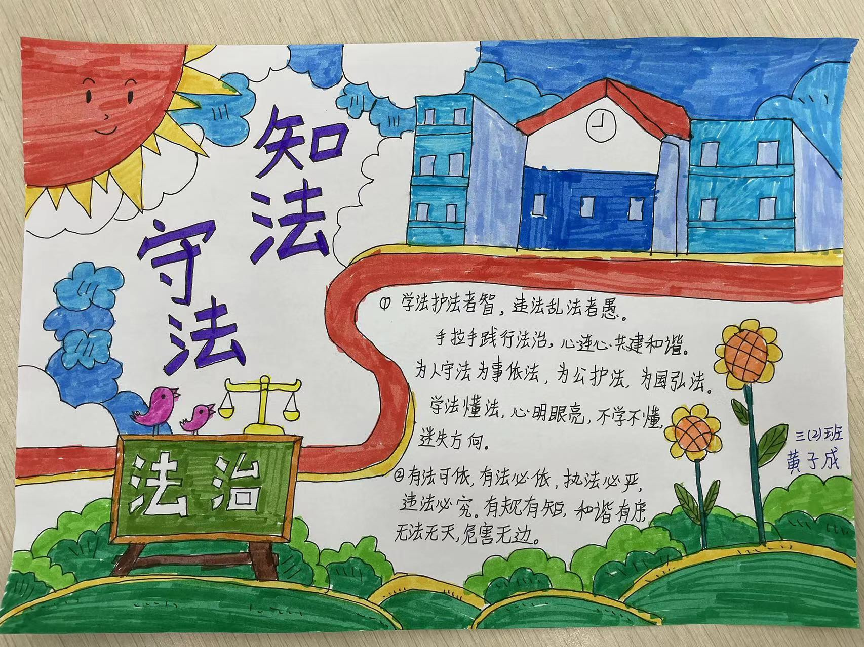 知法
守法
① 学法护法者智，违法乱法者愚。
手拉手践行法治，心连心共建和谐。
为人守法为事依法，为公护法，为国弘法。
学法懂法，心明眼亮，不学不懂，
迷失方向。
②有法可依，有法必依，执法必严，
违法必究。有规有矩，和谐有序，
无法无天，危害无边。
三(2)班
黄子成
法治